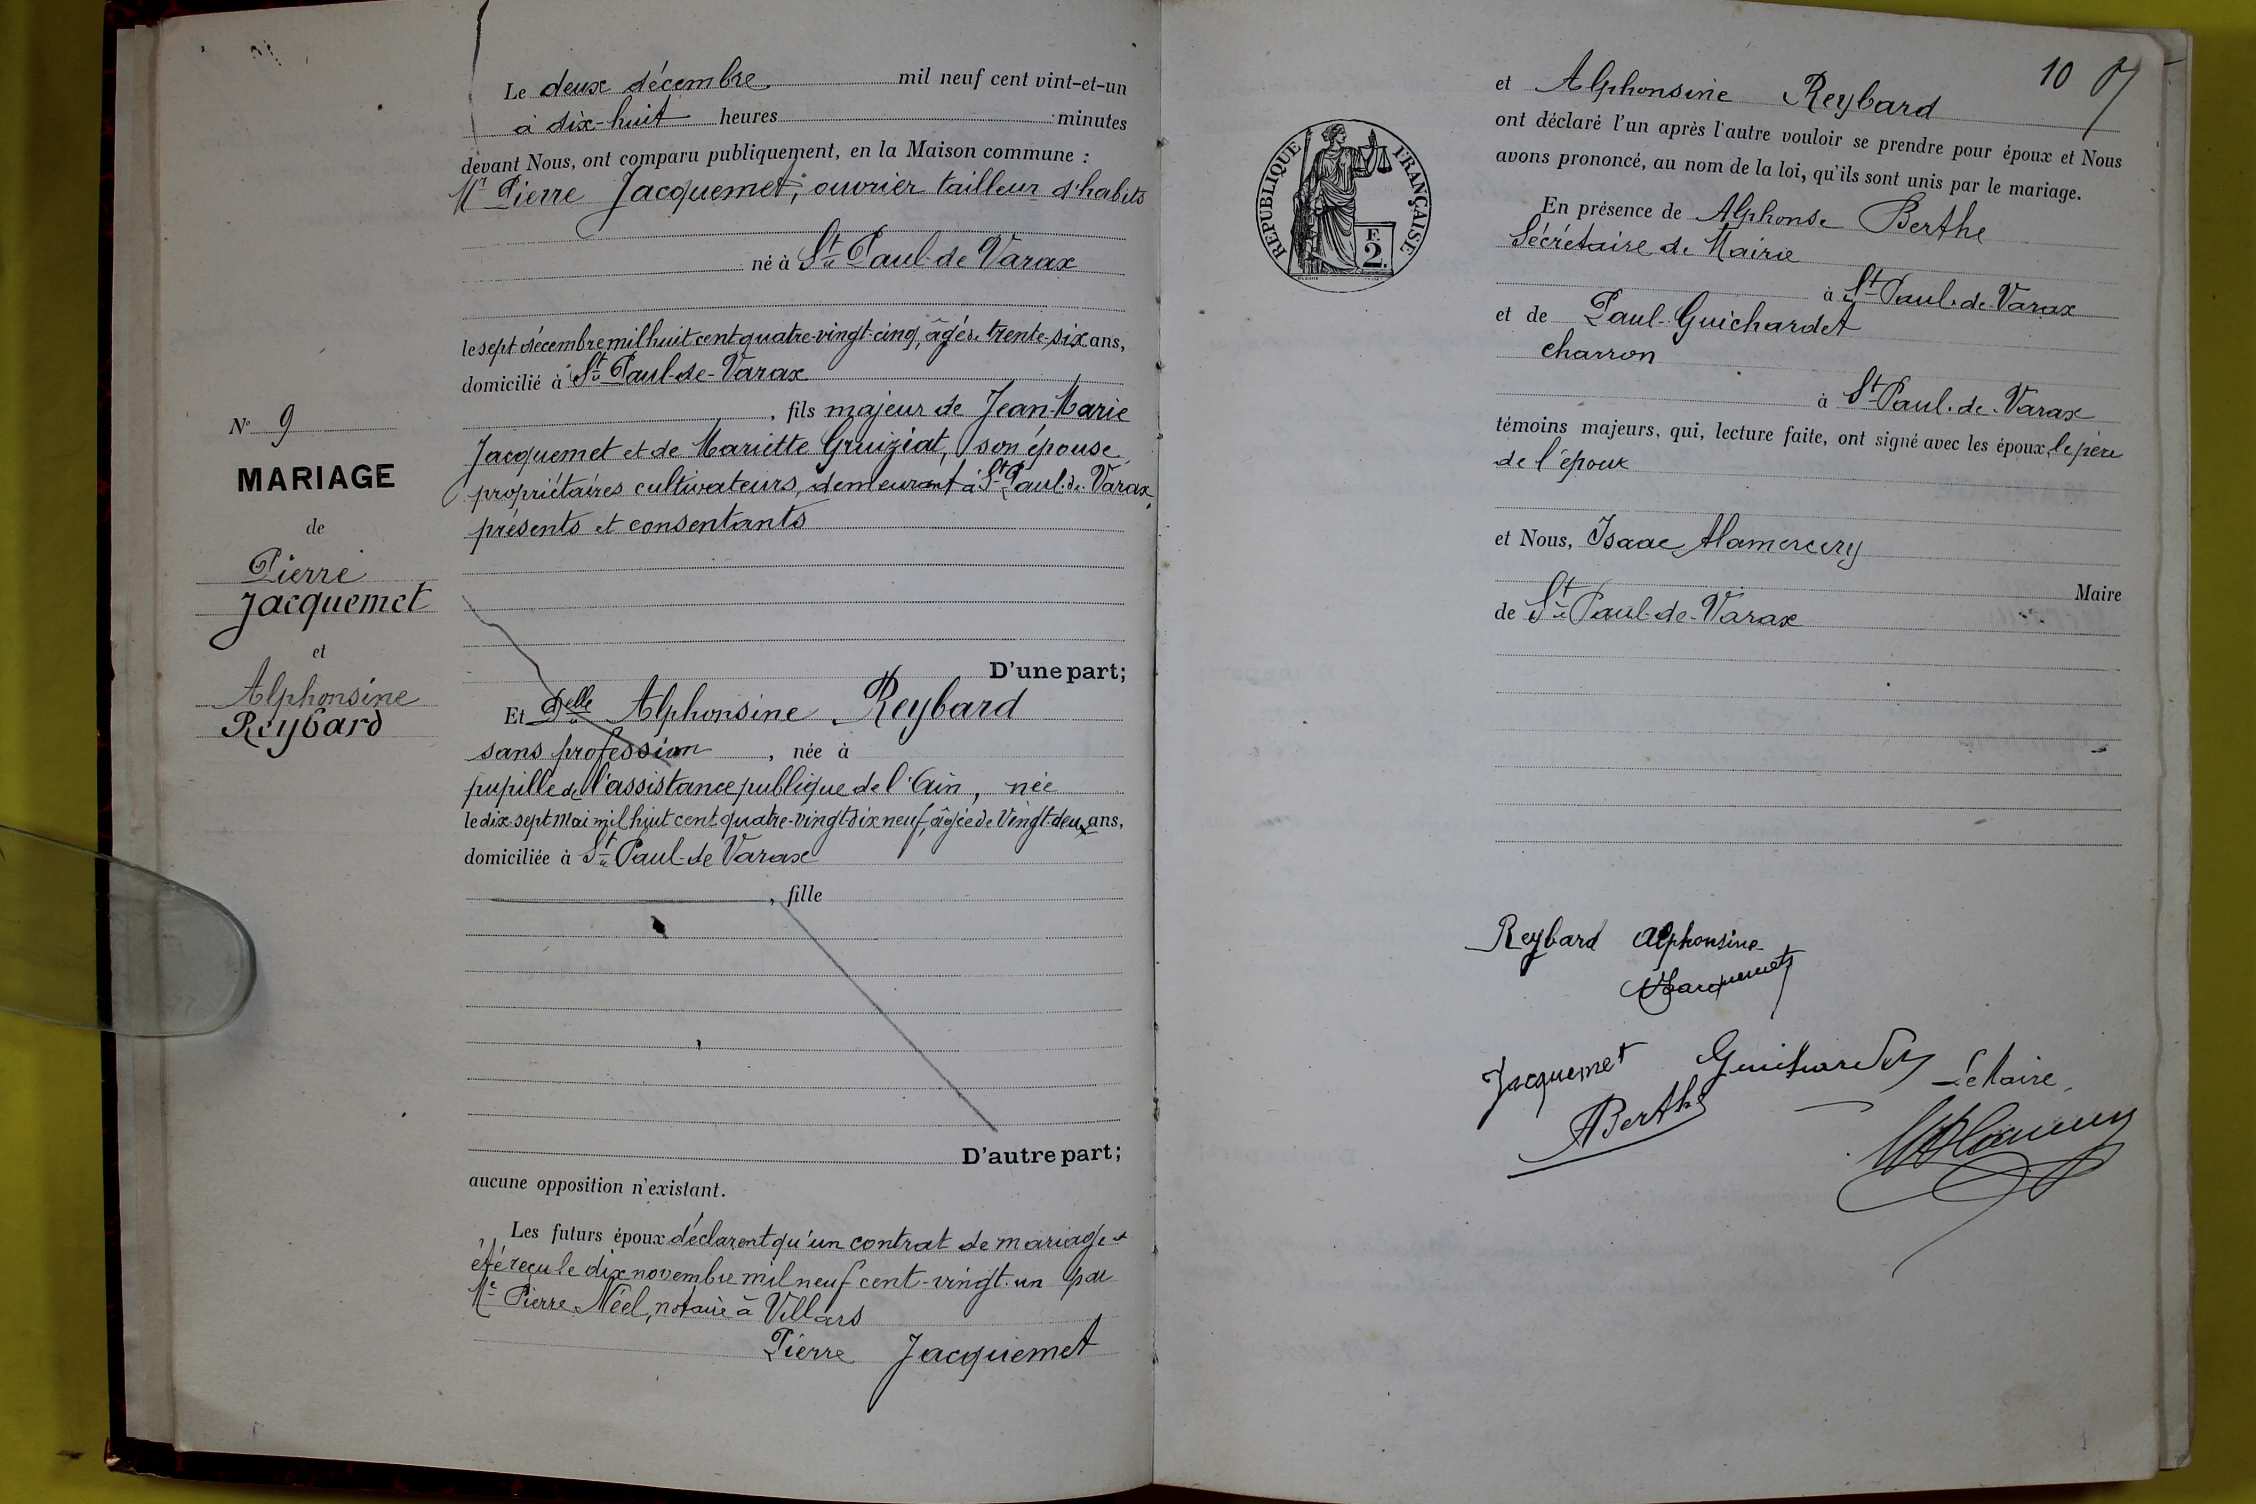 Le deux décembre mil neuf cent vint-et-un
à dix-huit heures minutes
devant Nous, ont comparu publiquement, en la Maison commune :
Mr Pierre Jacquemet, ouvrier tailleur d'habits
né à St Paul-de Varax
le sept décembre mil huit cent quatre-vingt-cinq, âgé de trente-six ans,
domicilié à St Paul-de-Varax
, fils majeur de Jean-Marie
Jacquemet et de Mariette Gruiziat, son épouse
propriétaires cultivateurs, demeurant à St Paul-de-Varax,
présents et consentants
D'une part;
Et Delle Alphonsine Reybard
sans profession , née à
pupille de l'assistance publique de l'Ain, née
le dix-sept Mai mil huit cent quatre-vingt-dix neuf, âgée de Vingt-deux ans,
domiciliée à St Paul-de Varax
, fille
D'autre part;
aucune opposition n'existant.
Les futurs époux déclarent qu'un contrat de mariage a
été reçu le dix novembre mil neuf cent-vingt-un par
Me Pierre Néel, notaire à Villars
Pierre Jacquemet
No 9
MARIAGE
de
Pierre
Jacquemet
et
Alphonsine
Reybard
10
et Alphonsine Reybard
ont déclaré l'un après l'autre vouloir se prendre pour époux et Nous
avons prononcé, au nom de la loi, qu'ils sont unis par le mariage.
En présence de Alphonse Berthe
Sécrétaire de Mairie
à St Paul-de-Varax
et de Paul Guichardet
charron
à St Paul-de-Varax
témoins majeurs, qui, lecture faite, ont signé avec les époux, le père
de l'époux
et Nous, Isaac Alamercery
Maire
de St Paul-de-Varax
RÉPUBLIQUE FRANÇAISE
F.
2.
Reybard Alphonsine
Jacquemet
Jacquemet Guichardet Le Maire,
ABerthe